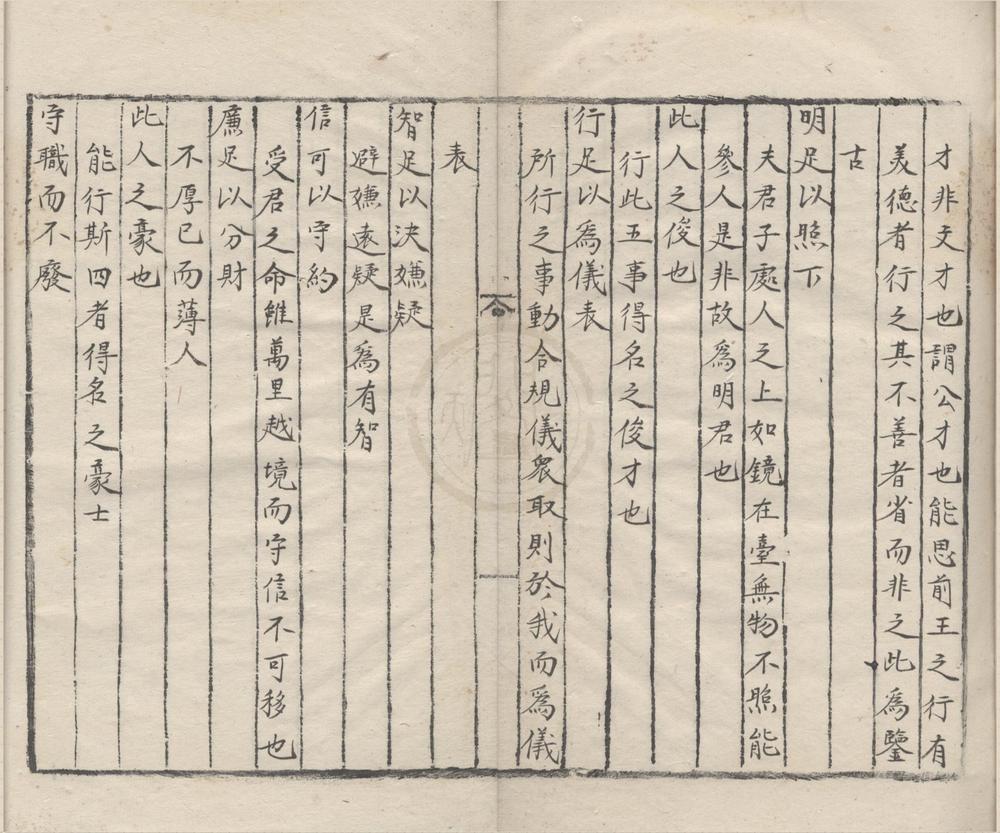 才非文才也謂公才也能思前王之行有
美德者行之其不善者省而非之此為鑒
古
明足以照下
夫君子處人之上如鏡在臺無物不照能
參人是非故為明君也
此人之俊也
行此五事得名之俊才也
行足以為儀表
所行之事動合規儀衆取則於我而為儀
表
智足以決嫌疑
避嫌遠疑是為有智
信可以守約
受君之命雖萬里越境而守信不可移也
廉足以分財
不厚已而薄人
此人之豪也
能行斯四者得名之豪士
守職而不廢